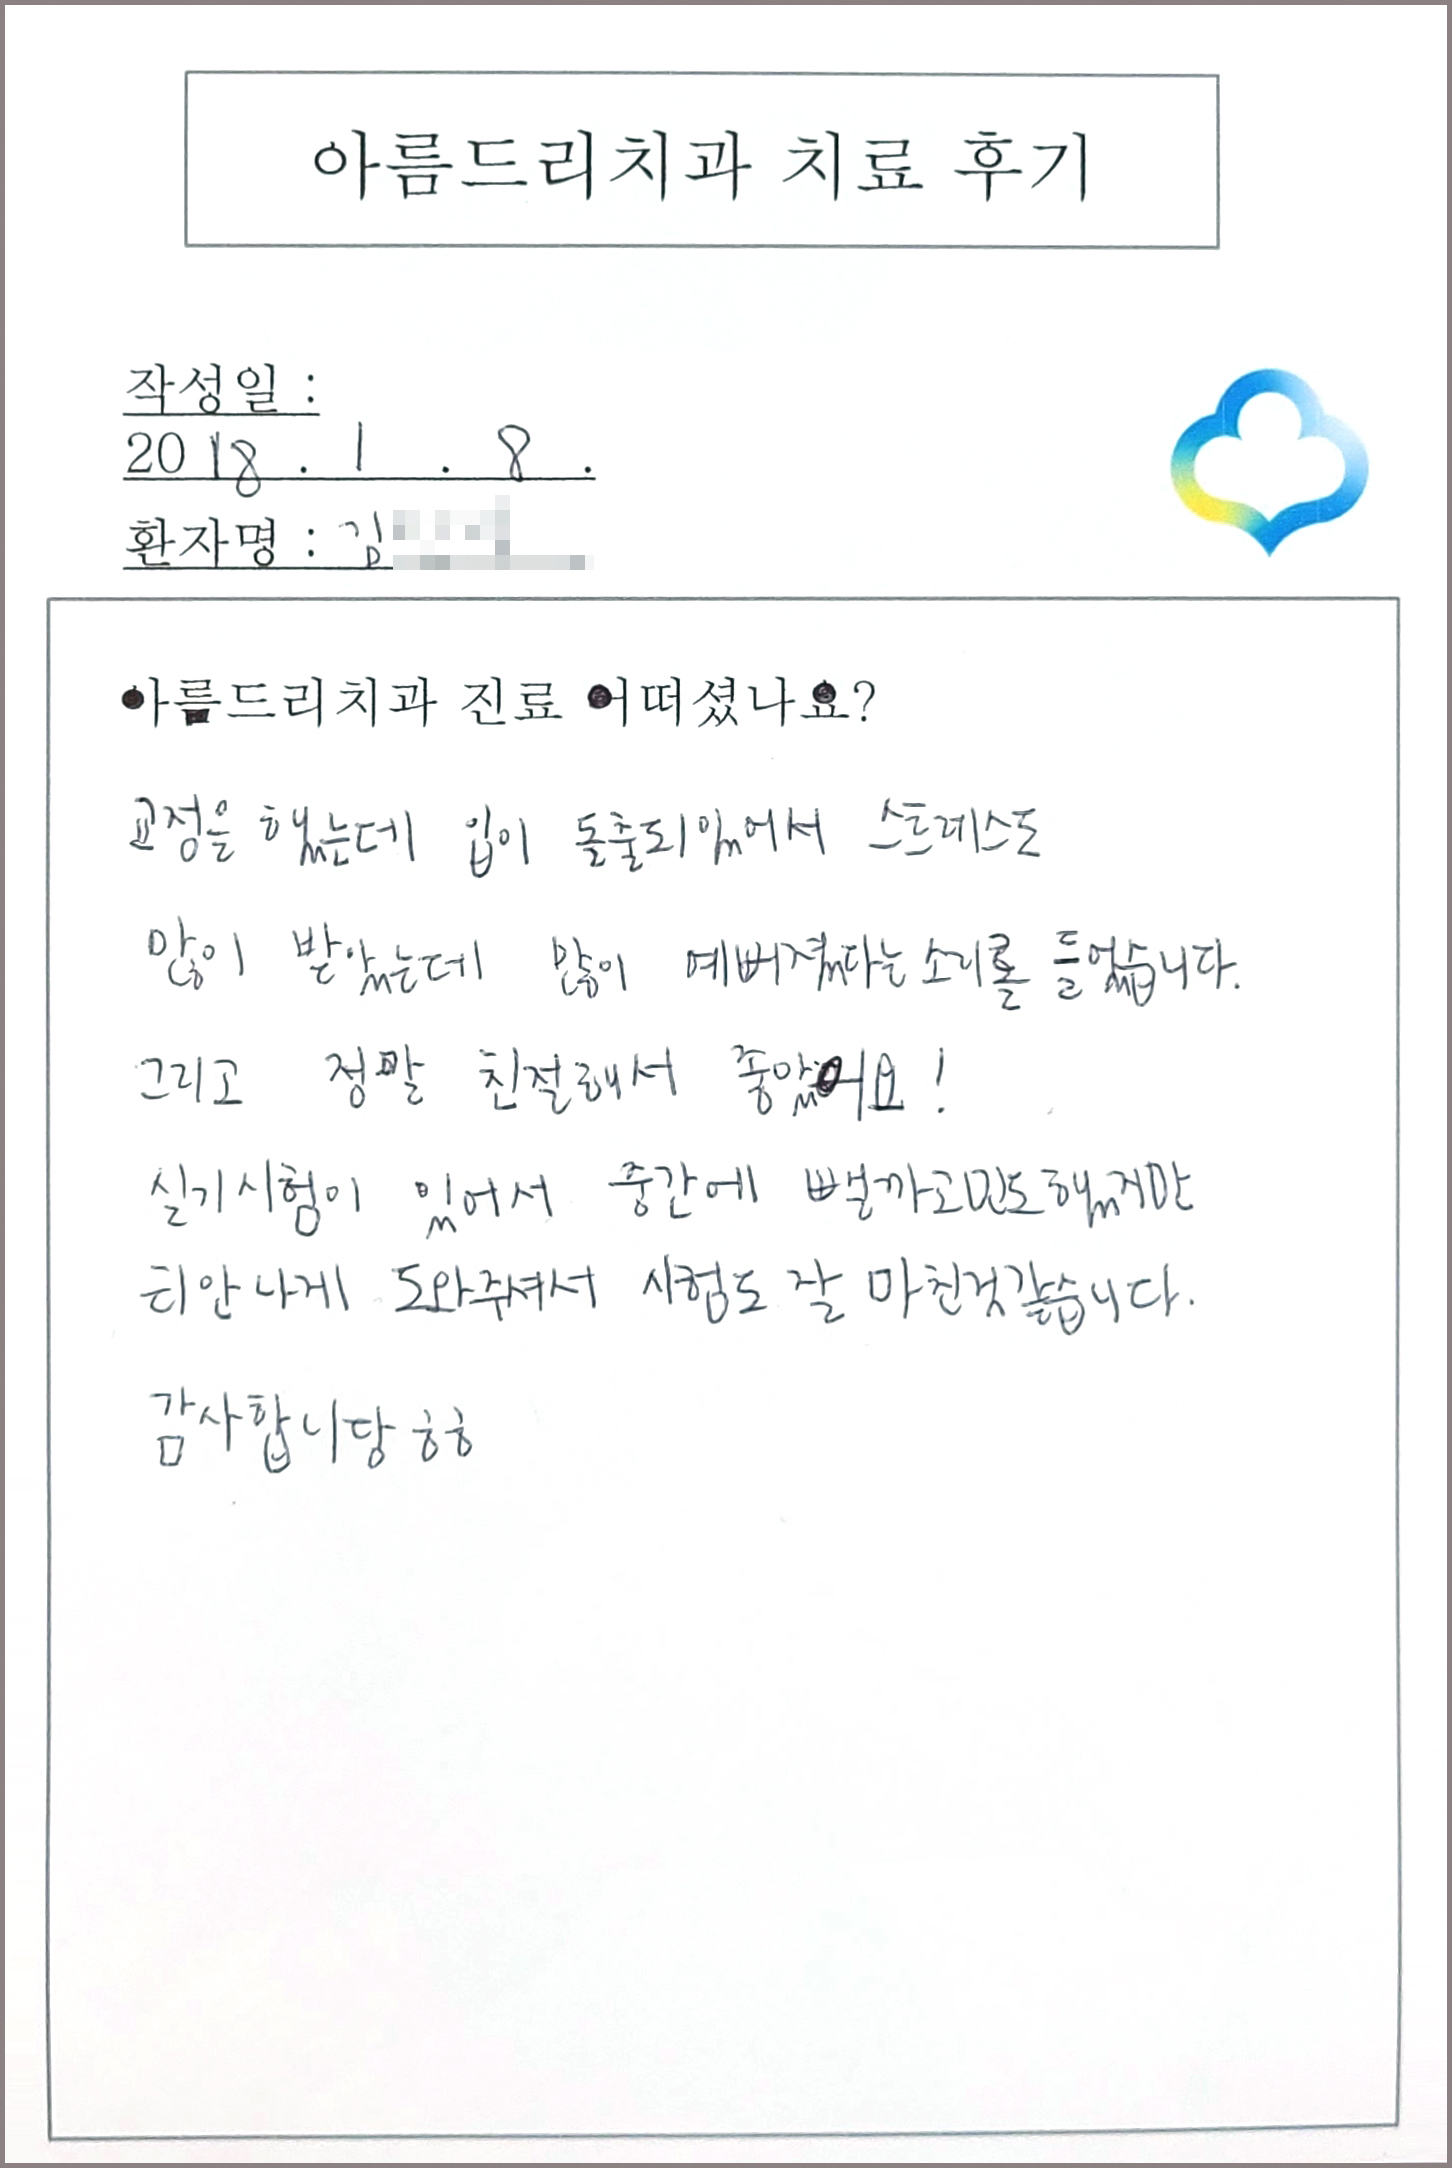 아름드리치과 치료 후기
작성일 :
2018 . 1 . 8 .
환자명 : 김
아름드리치과 진료 어떠셨나요?
교정을 했는데 입이 돌출되있어서 스트레스도
많이 받았는데 많이 예뻐졌다는 소리를 들었습니다.
그리고 정말 친절해서 좋았어요!
실기시험이 있어서 중간에 뺄까고민도했지만
티안나게 도와주셔서 시험도 잘 마친것같습니다.
감사합니당 ㅎㅎ